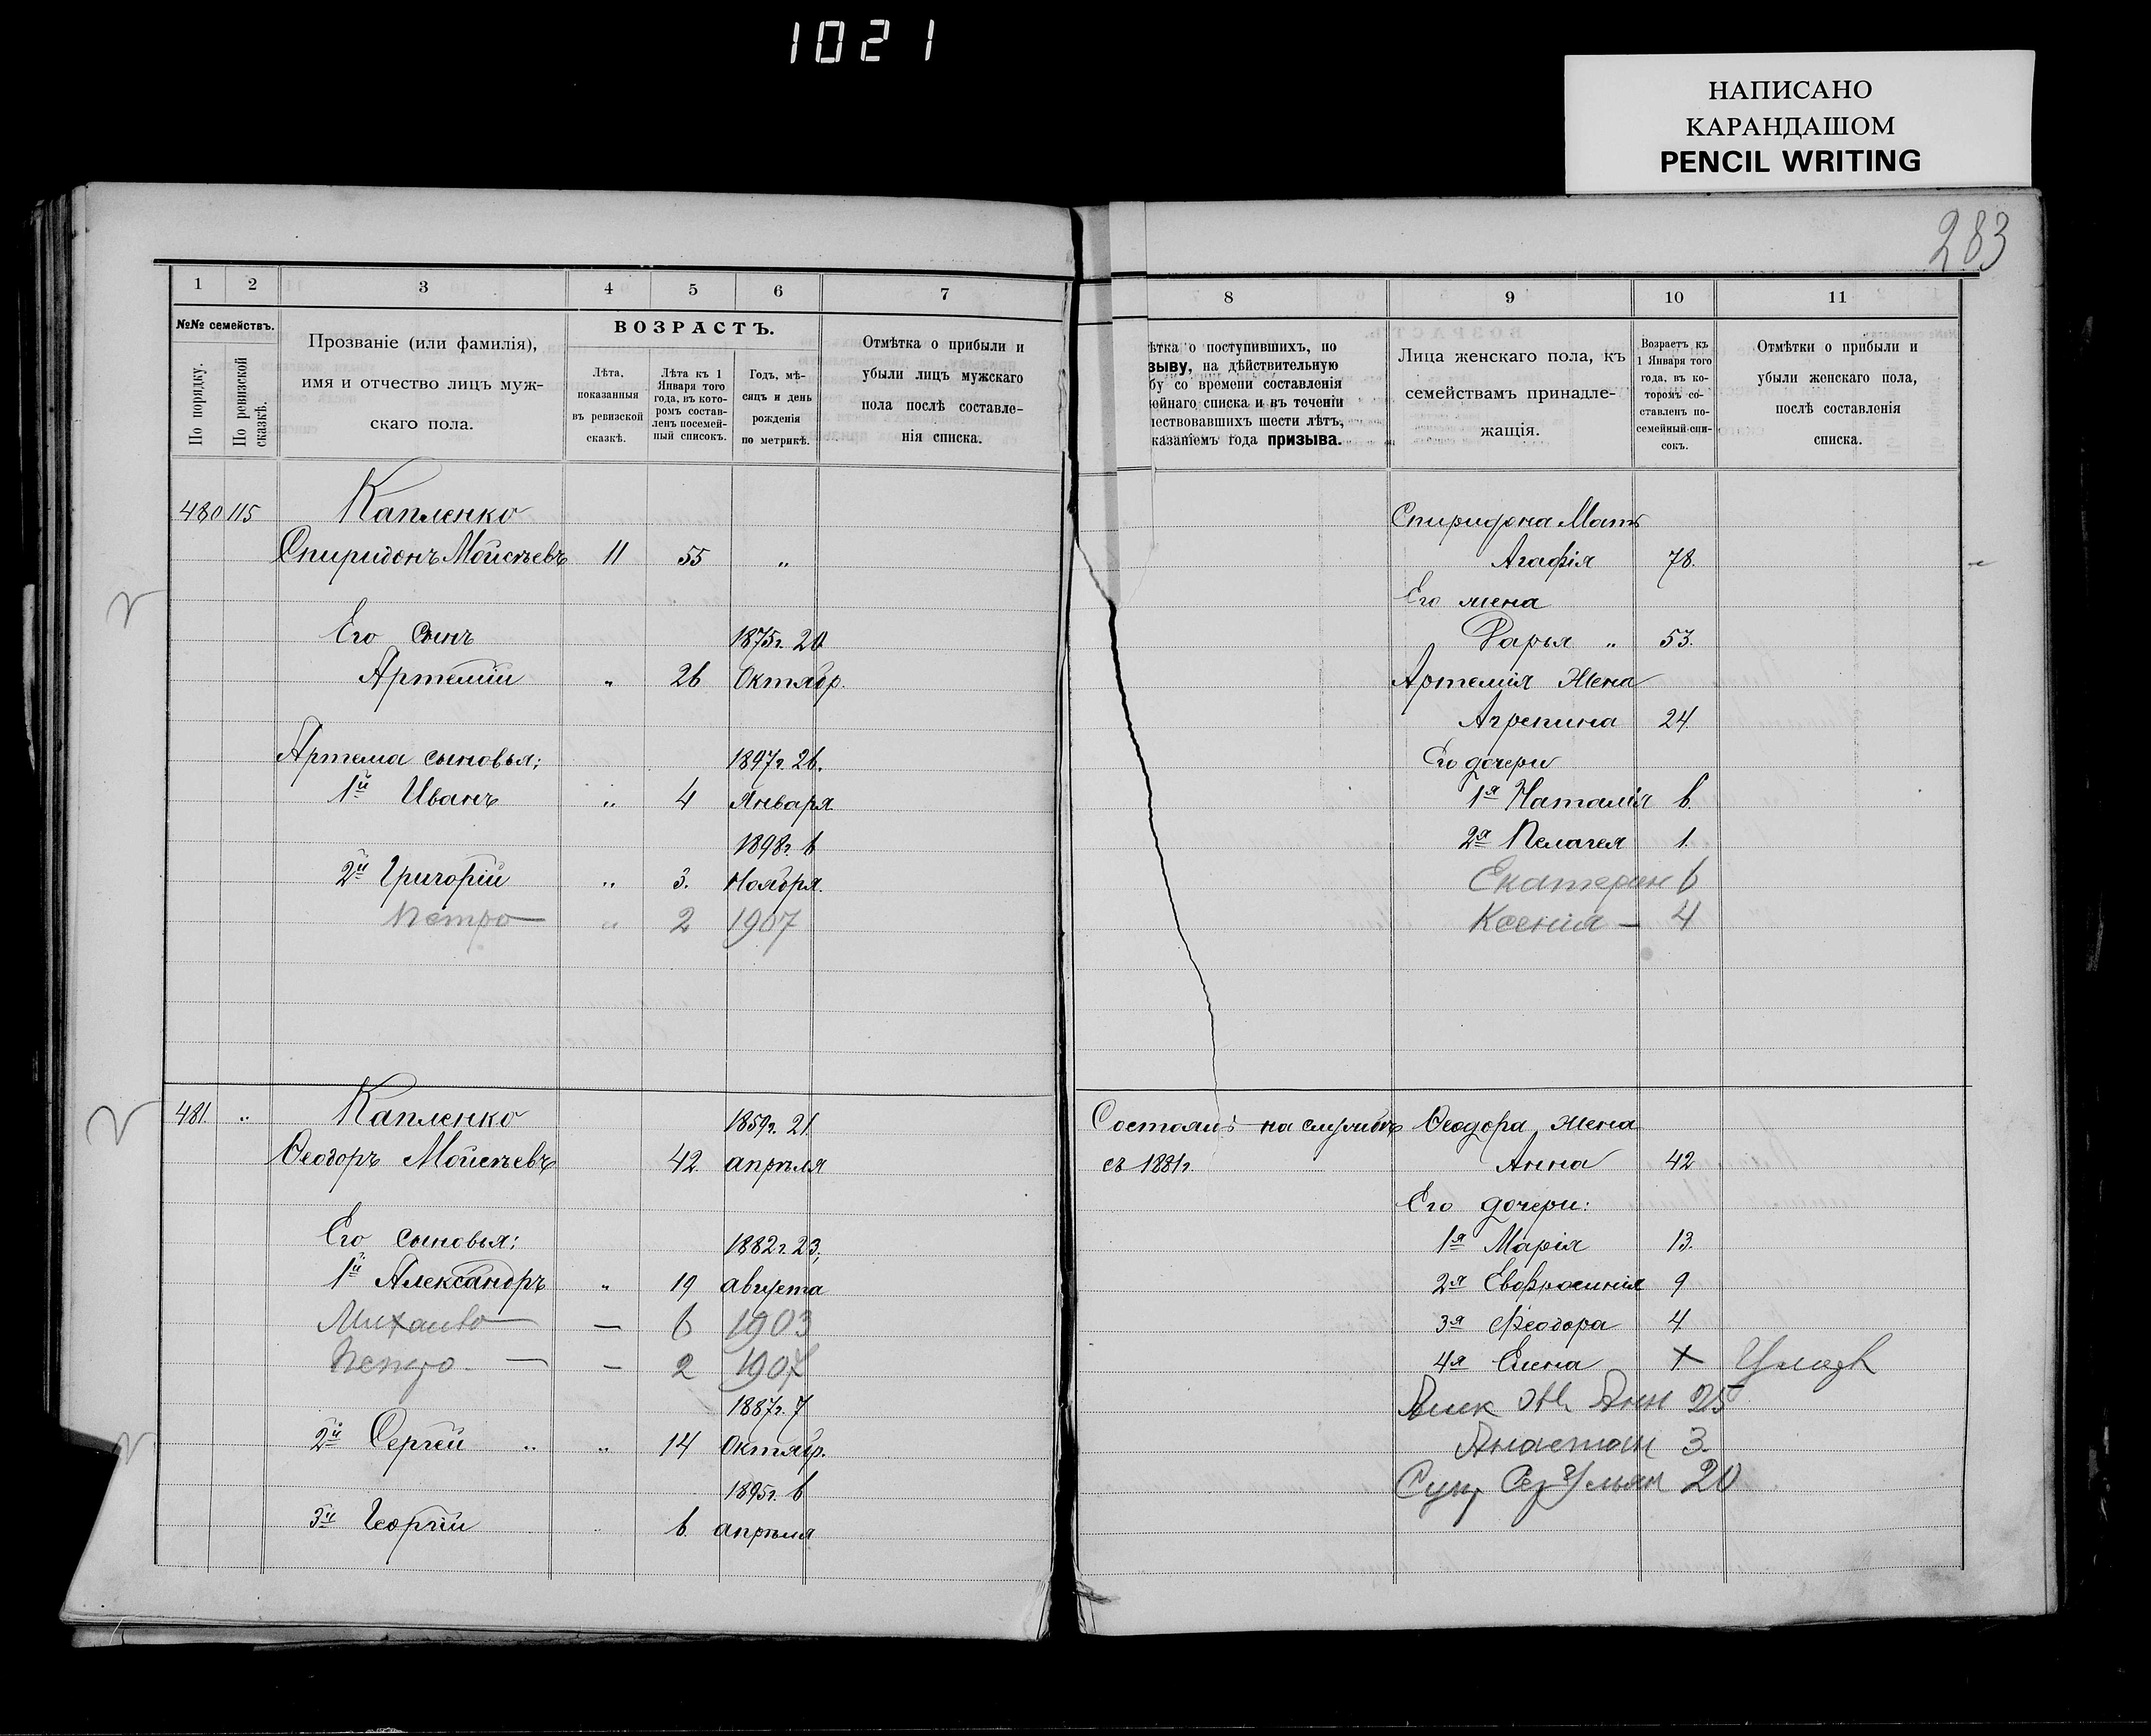 1021
НАПИСАНО
КАРАНДАШОМ
PENCIL WRITING
283
1 2 3 4 5 6 7
№№ семействъ.
По порядку.
По ревизской сказкѣ.
Прозваніе (или фамилія),
имя и отчество лицъ муж-
скаго пола.
ВОЗРАСТЪ.
Лѣта,
показанныя
въ ревизской
сказкѣ.
Лѣта къ 1
Января того
года, въ кото-
ромъ состав-
ленъ посемей-
ный списокъ.
Годъ, мѣ-
сяцъ и день
рожденія
по метрикѣ.
Отмѣтка о прибыли и
убыли лицъ мужскаго
пола послѣ составле-
нія списка.
480 115 Капленко
Спиридонъ Мойсѣевъ 11 55 "
Его сынъ 1875г. 20
Артемій " 26 Октябр.
Артема сыновья: 1897г. 26.
1й Иванъ " 4 Января
1898г. 6
2й Григорій " 3. Ноября
Петро " 2 1907
481. " Капленко 1859г. 21
Ѳеодоръ Мойсѣевъ 42 апрѣля
Его сыновья: 1882г. 23,
1й Александръ " 19 августа
— 6 1903
Петро — 2 1907
1887г. 7
2й Сергѣй " " 14 Октябр.
1895г. 6
3й Георгій 6 апрѣля
8 9 10 11
ѣтка о поступившихъ, по
зыву, на дѣйствительную
бу со времени составленія
ейнаго списка и въ теченіи
шествовавшихъ шести лѣтъ,
казаніемъ года призыва.
Лица женскаго пола, къ
семействамъ принадле-
жащія.
Возрастъ къ
1 Января того
года, въ ко-
торомъ со-
ставленъ по-
семейный спи-
сокъ.
Отмѣтки о прибыли и
убыли женскаго пола,
послѣ составленія
списка.
Спиридона Мать
Агафія 78.
Его жена
Дарья " 53.
Артемія Жена
Агрепина 24.
Его дочери
1я Наталія 6.
2я Пелагея 1.
Екатерин 6
Ксенія — 4
Состоялъ на службѣ Ѳеодора жена
съ 1881г. Анна 42
Его дочери:
1я Марія 13.
2я Евфросинія 9
3я Феодора 4.
4я Елена
Анн 25
Анастаси 3.
Ульян 20